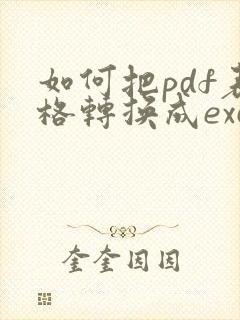 如何把pdf表
格轉換成exc
奎奎因因